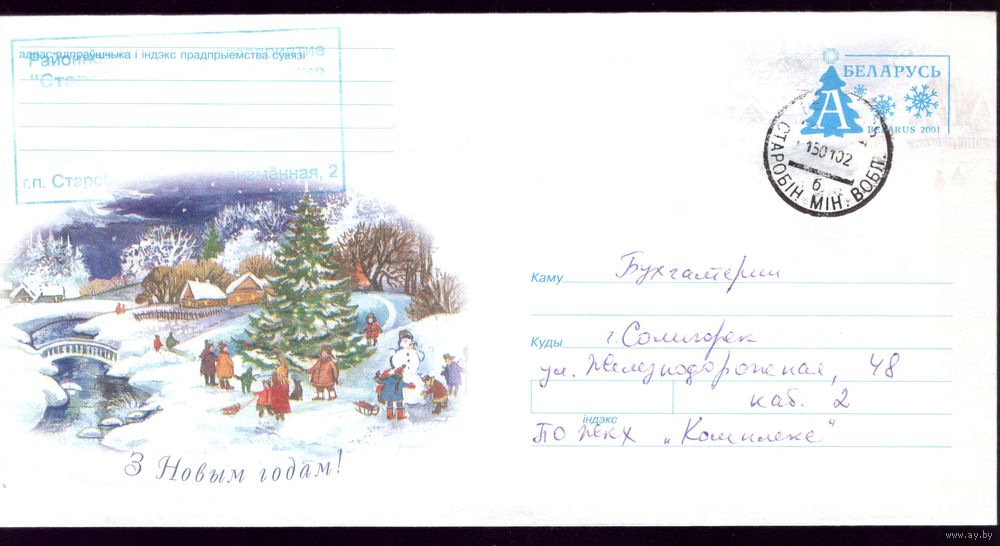 адрас адпраўшчыка і індэкс прадпрыемства сувязі
г.п. Старо знамённая, 2
БЕЛАРУСЬ
А
BELARUS 2001
150102
б
СТАРОБІН МІН. ВОБЛ.
Каму Бухгалтерии
Куды г. Солигорск
ул. Железнодорожная, 48
каб. 2
індэкс
ПО ЖКХ „Комплекс"
З Новым годам!
www.ay.by